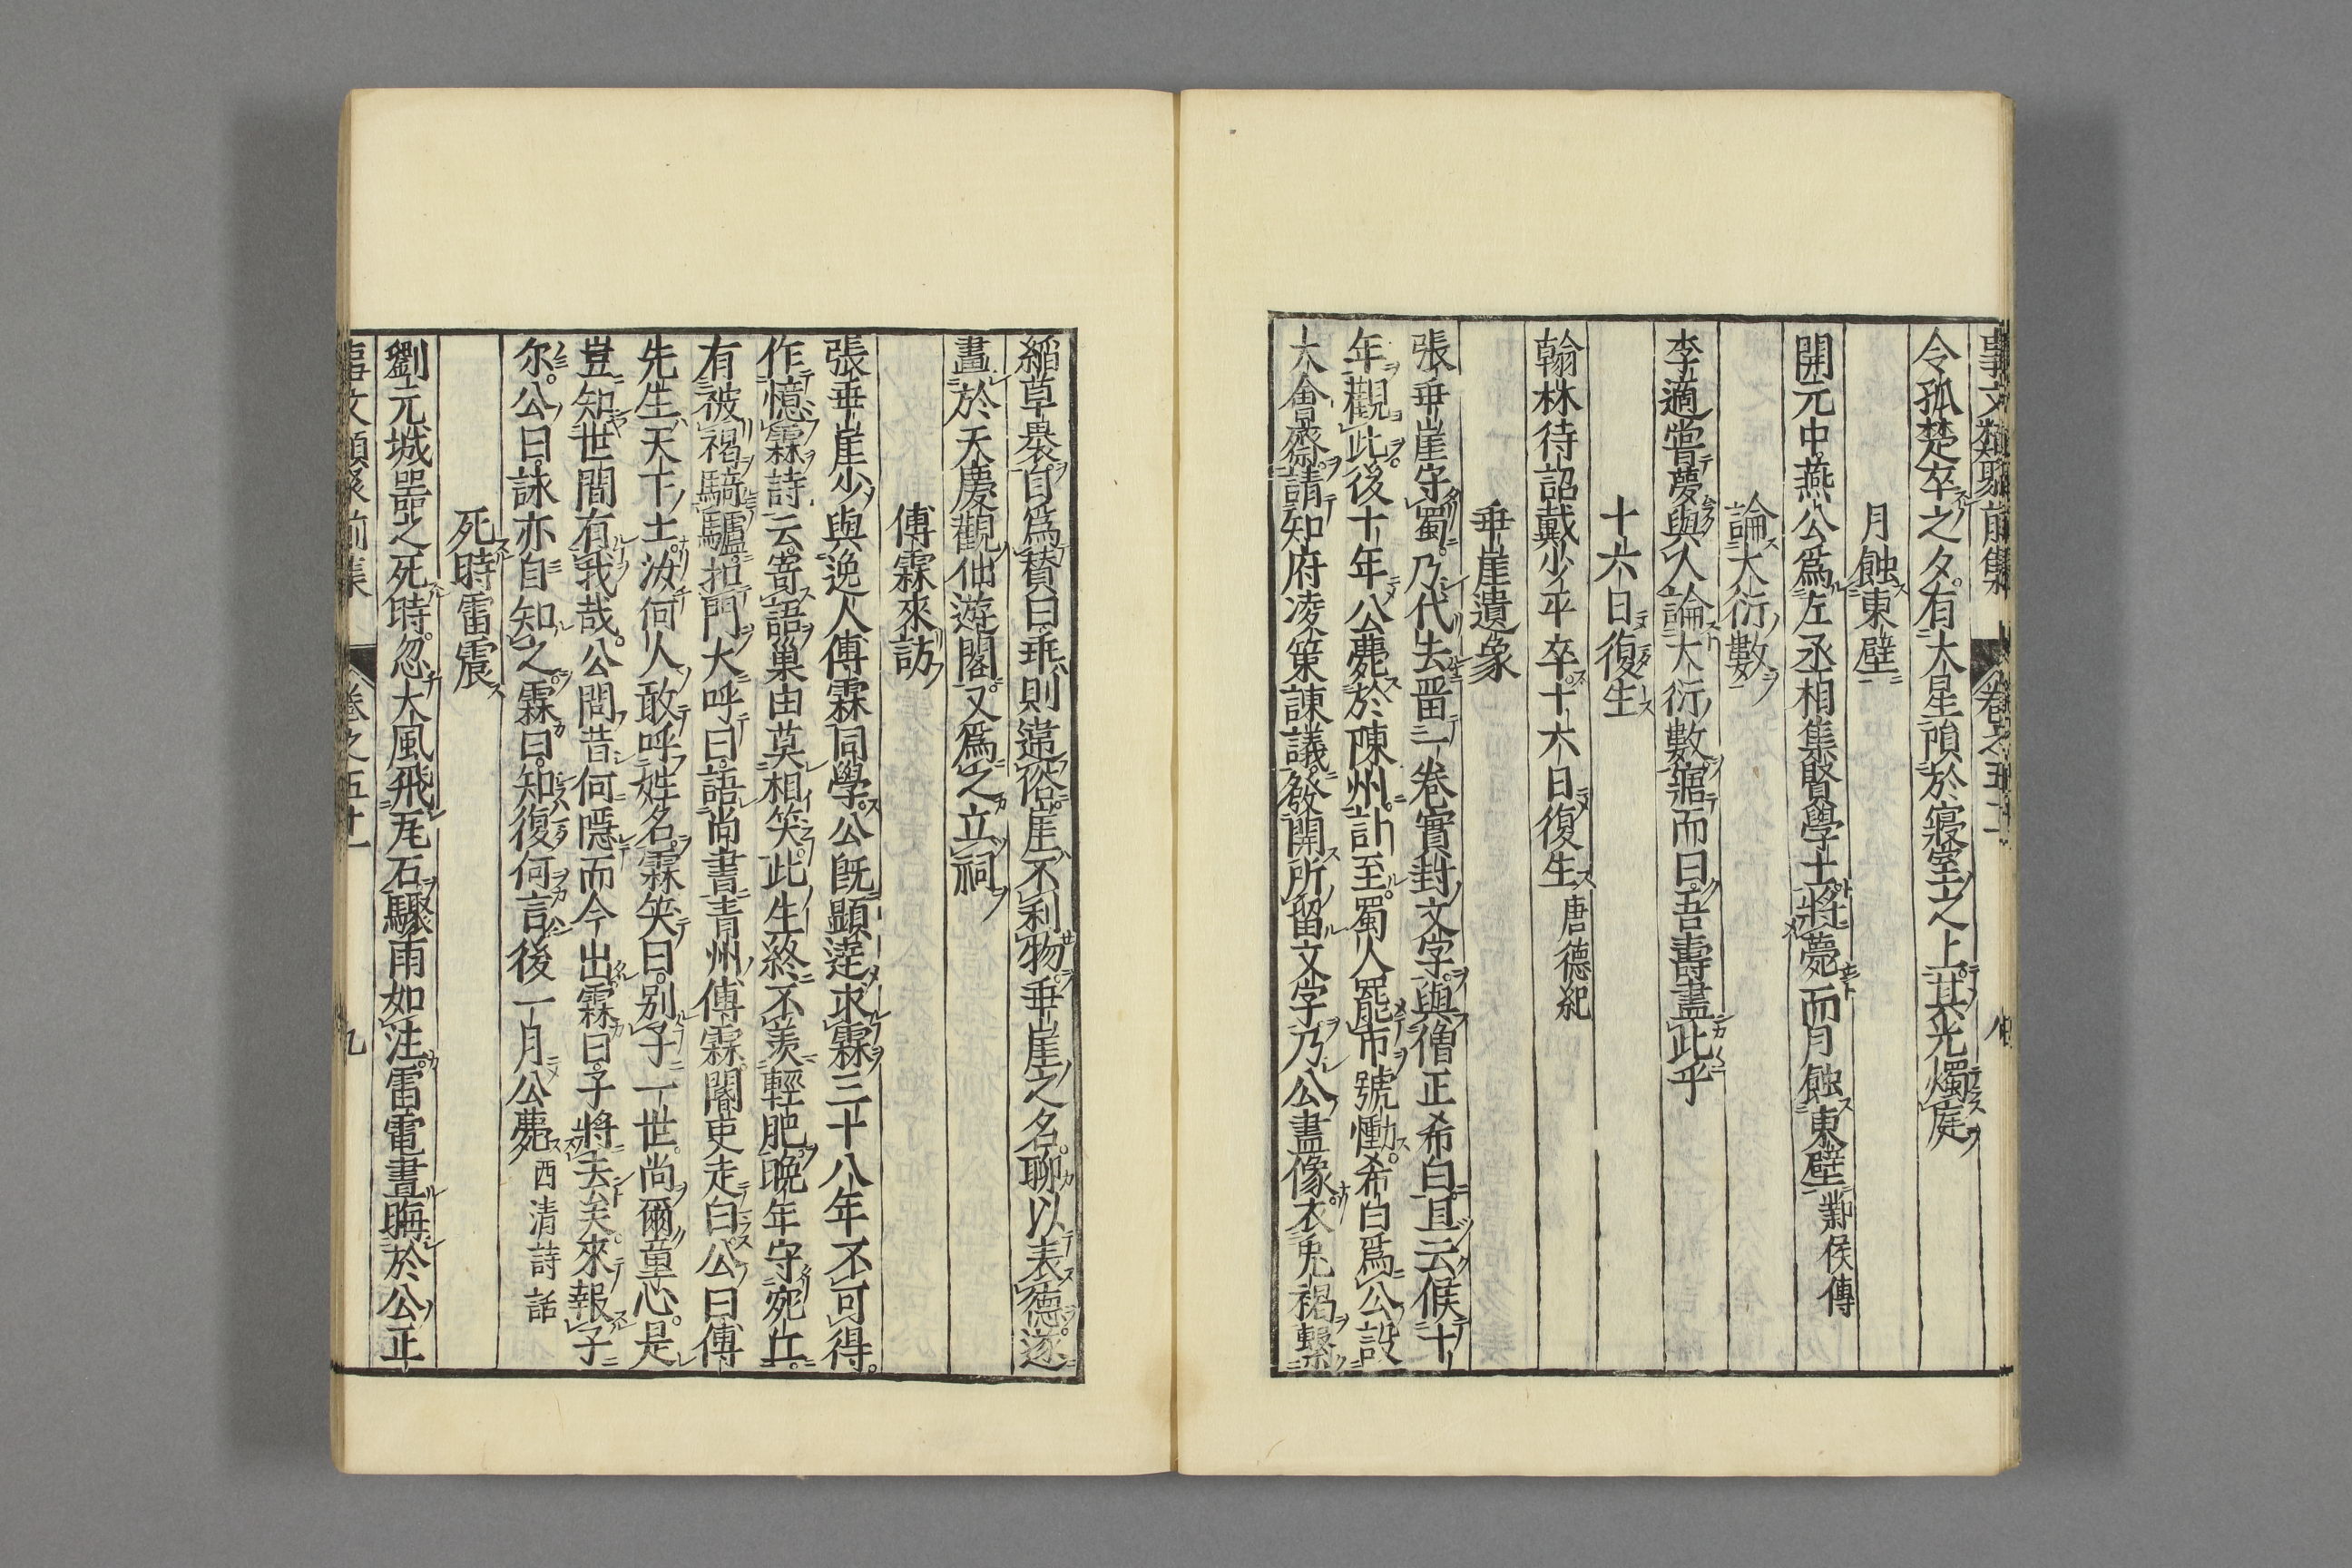 事文類聚前集 卷之五十一 八
令孤楚卒之夕有大星隕於寢室之上其光燭庭
月蝕東壁
開元中燕公爲左丞相集賢學士將薨而月蝕東壁 鄴侯傳
論大衍數
李適嘗夢與人論大衍數寤而曰吾壽盡此乎
十六日復生
翰林待詔戴少平卒十六日復生 唐德紀
垂崖遺象
張垂崖守蜀乃代去畱一卷實封文字與僧正希白且云候十
年觀此後十年公薨於陳州訃至蜀人罷市號慟希白爲公設
大會齋請知府凌策諫議發開所留文字乃公畫像衣兎褐繫
縚草裹自爲贊曰乖則違俗崖不利物垂崖之名聊以表德遂
畫於天慶觀仙遊閣又爲之立祠
傅霖來訪
張垂崖少與逸人傅霖同學公旣顯達求霖三十八年不可得
作憶霖詩云寄語巢由莫相笑此生終不羨輕肥晩年守宛丘
有被褐騎驢扣門大呼曰語尚書青州傅霖閽吏走白公曰傅
先生天下士汝何人敢呼姓名霖笑曰别子一世尚爾童心是
豈知世間有我哉公問昔何隱而今出霖曰子將去矣來報子
尓公曰詠亦自知之霖曰知復何言後一月公薨 西清詩話
死時雷震
劉元城噐之死時忽大風飛瓦石驟雨如注雷電晝晦於公正
事文類聚前集 卷之五十一 九